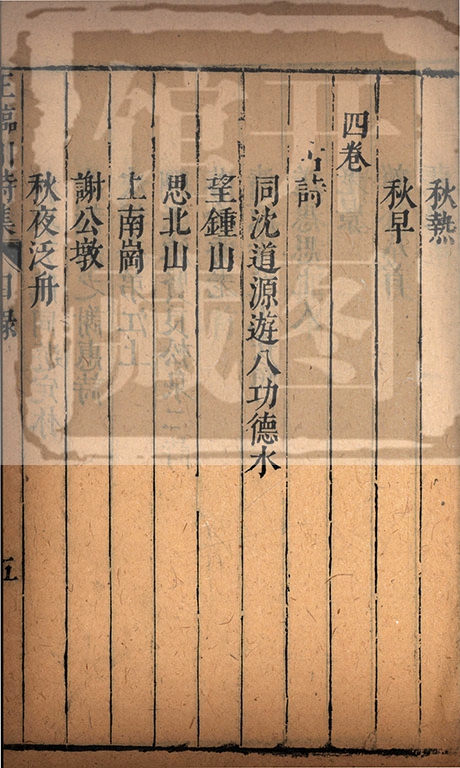 秋熱
秋早
四卷
古詩
同沈道源遊八功德水
望鍾山
思北山
上南崗
謝公墩
秋夜泛舟
王臨川詩集 目錄 五